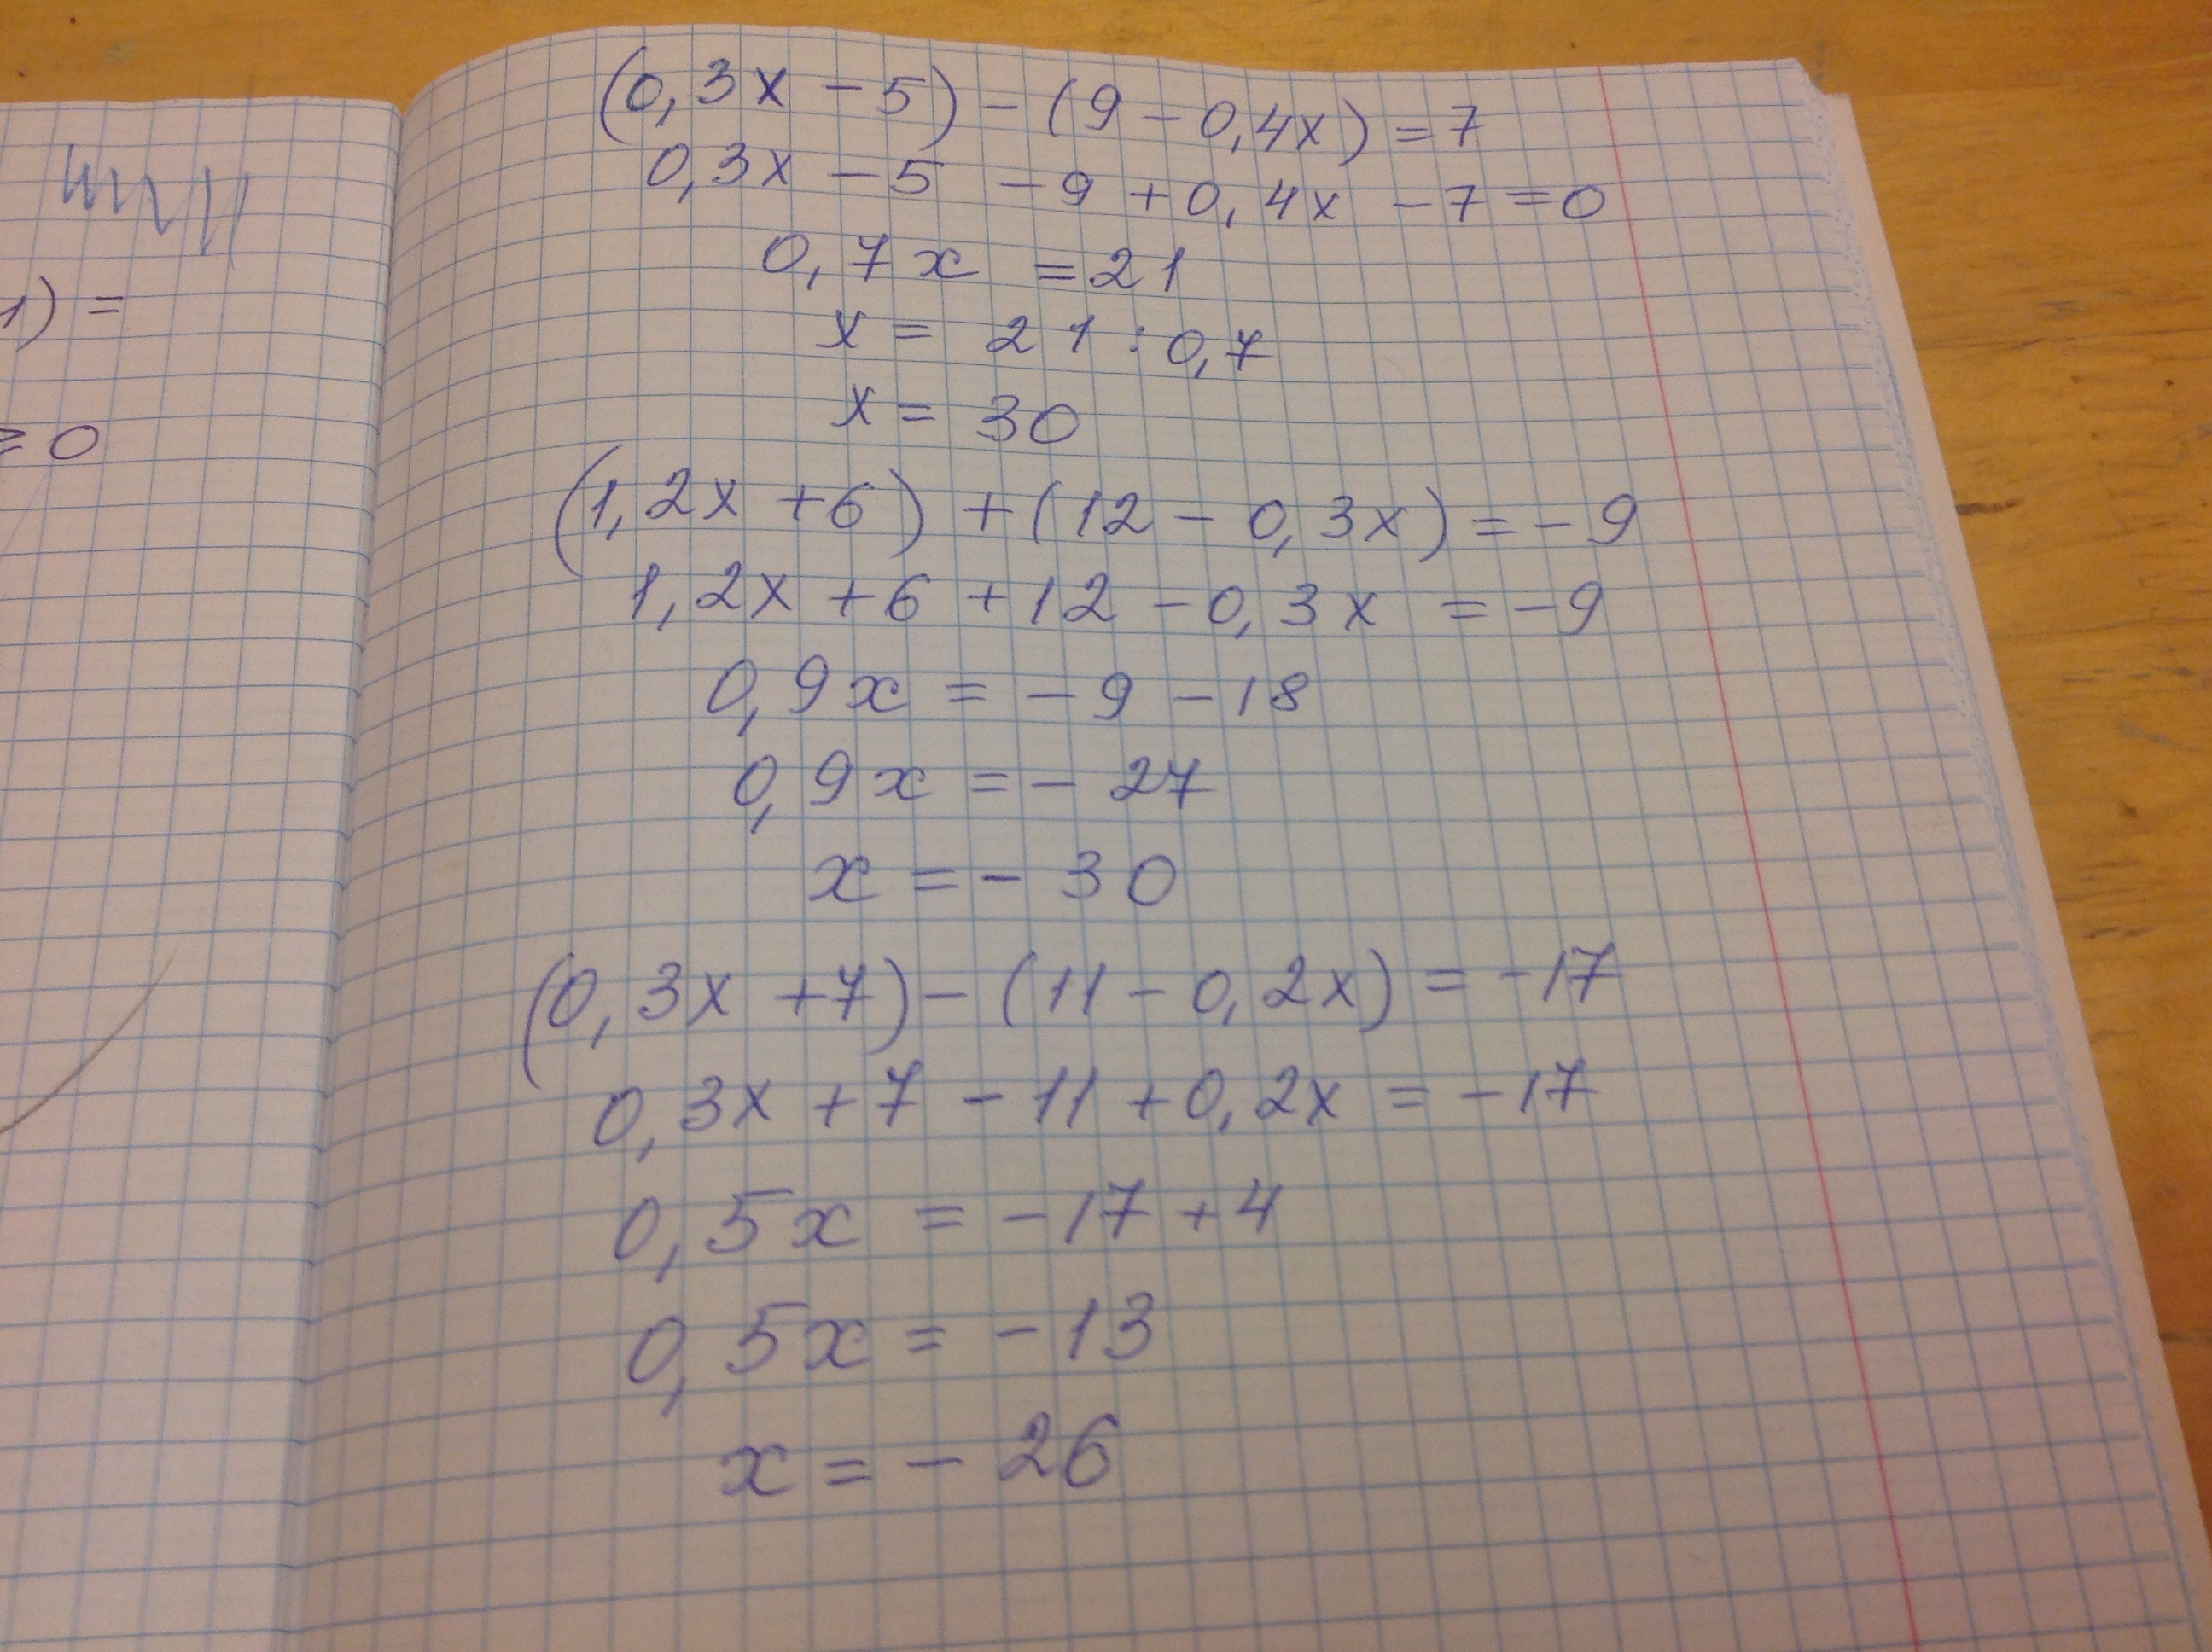 1) =
≥ 0
(0,3x - 5) - (9 - 0,4x) = 7
0,3x - 5 - 9 + 0,4x - 7 = 0
0,7x = 21
x = 21 : 0,7
x = 30
(1,2x + 6) + (12 - 0,3x) = - 9
1,2x + 6 + 12 - 0,3x = - 9
0,9x = - 9 - 18
0,9x = - 27
x = - 30
(0,3x + 7) - (11 - 0,2x) = -17
0,3x + 7 - 11 + 0,2x = -17
0,5x = - 17 + 4
0,5x = - 13
x = - 26